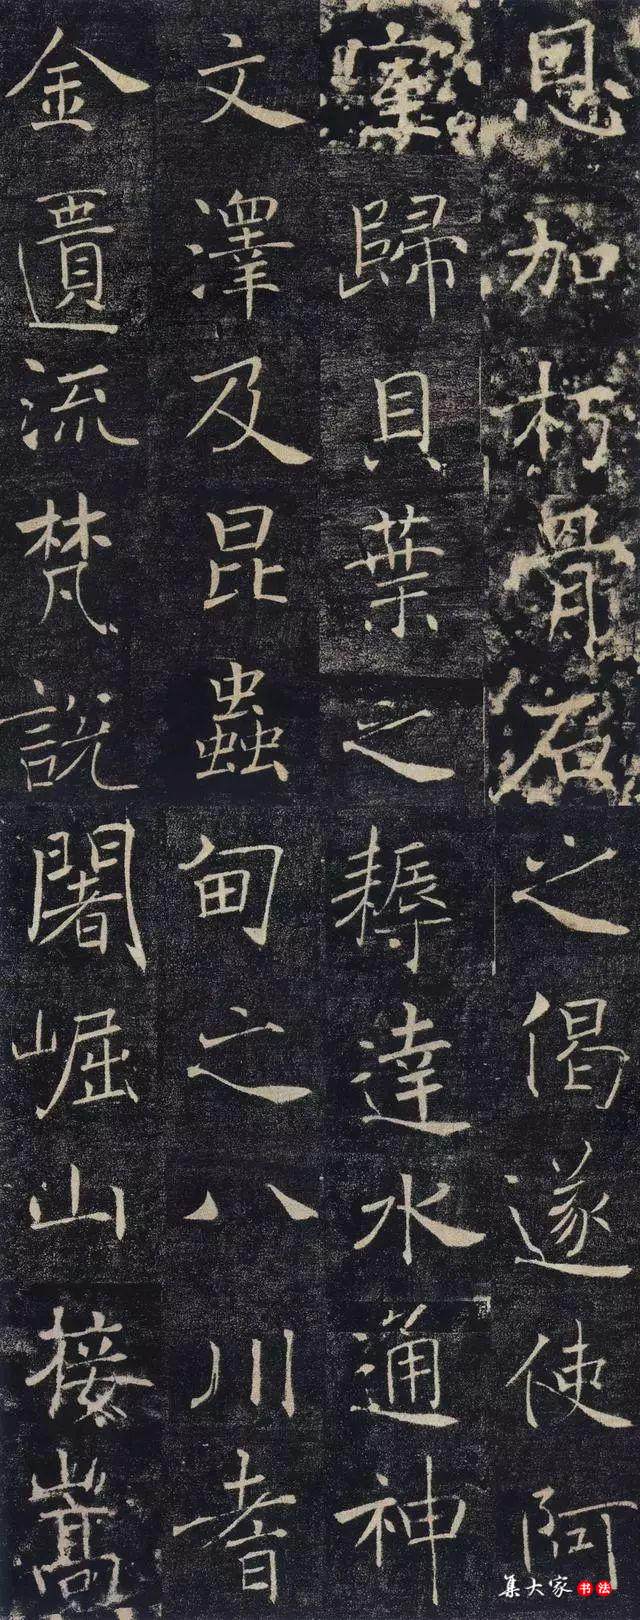 恩加朽骨石
室歸貝葉之
文澤及昆蟲
金匱流梵說
之偈遂使阿
耨達水通神
甸之八川耆
闍崛山接嵩
集大家书法